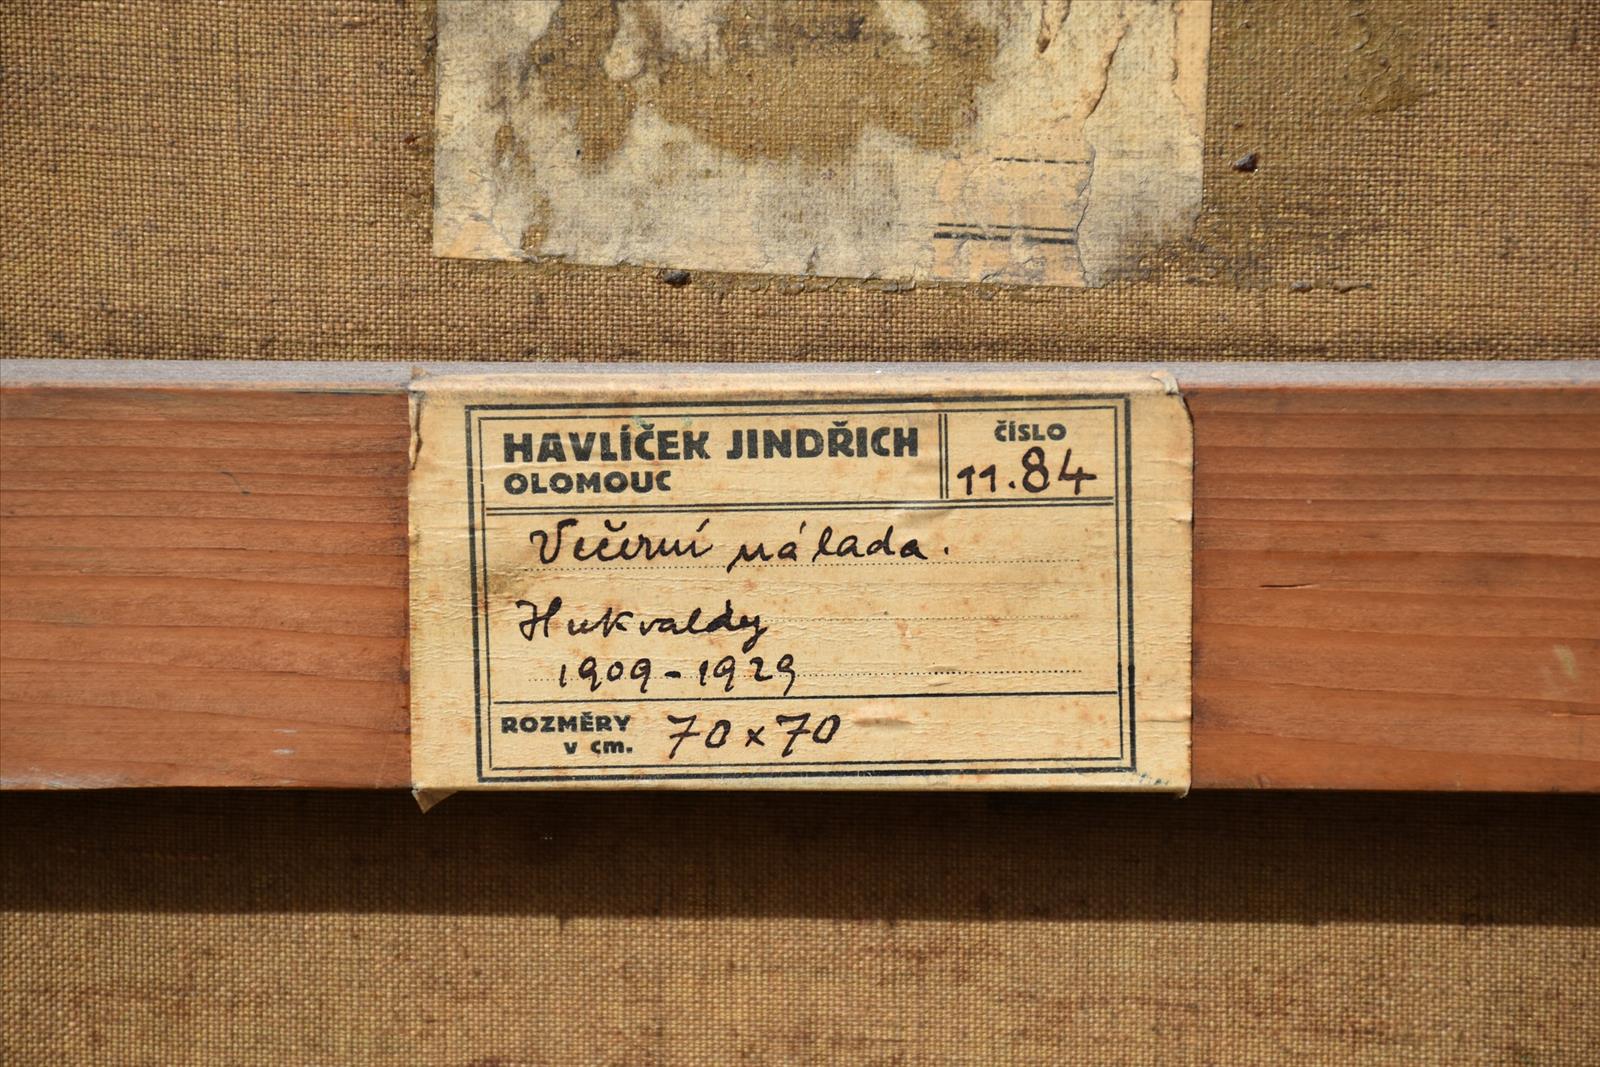 HAVLÍČEK JINDŘICH
OLOMOUC
ČÍSLO
11.84
Večerní nálada.
Hukvaldy
1909-1929
ROZMĚRY
v cm.
70x70